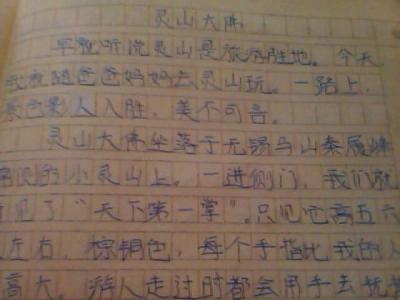 灵山大佛
早就听说灵山是旅游胜地。今天,
我就随爸爸妈妈去灵山玩。一路上,
景色影人入胜,美不可言。
灵山大佛坐落于无锡马山秦履峰
南侧的小灵山上。一进侧门,我们就
看见了“天下第一掌”。只见它高五六
左右,棕铜色,每个手指比我的人
高大。游人走过时都会用手去抚摸